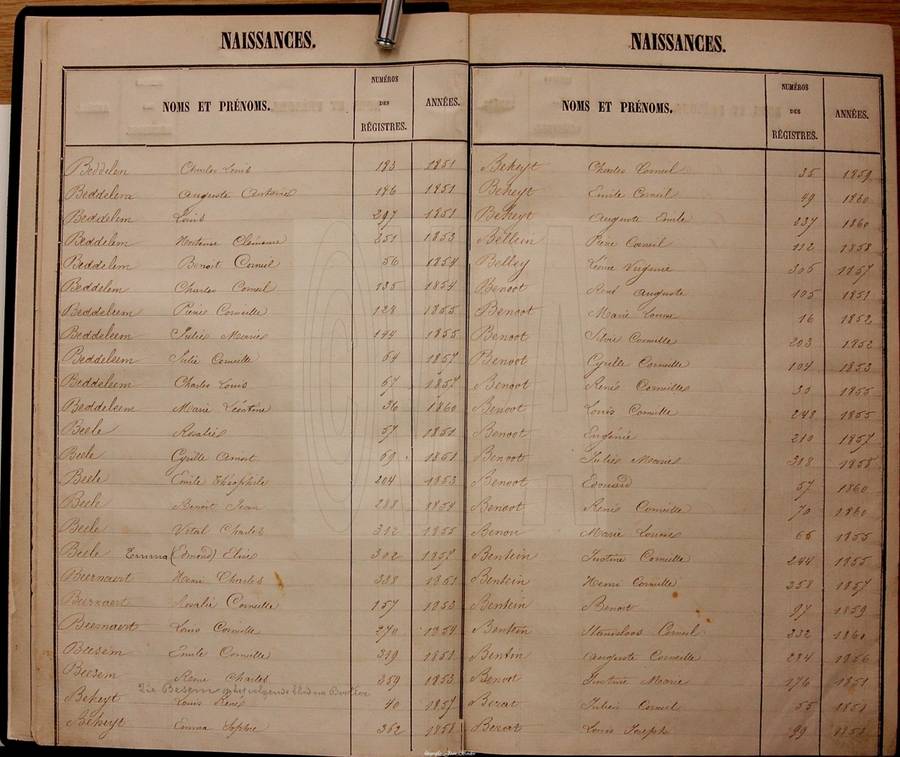 NAISSANCES.
NOMS ET PRÉNOMS. NUMÉROS DES RÉGISTRES. ANNÉES.
Beddelem Charles Louis 193 1851
Beddelem Auguste Antoine 196 1851
Beddelem Louis 297 1851
Beddelem Hortense Clémence 251 1853
Beddelem Benoit Corneil 56 1854
Beddelem Charles Corneil 135 1854
Beddeleem Pierre Corneille 128 1855
Beddeleem Julie Marie 144 1855
Beddeleem Julie Corneille 64 1857
Beddeleem Charles Louis 67 1857
Beddeleem Marie Léontine 36 1860
Beele Rosalie 57 1851
Beele Cyrille Amort 69 1851
Beele Emile Théophile 204 1853
Beele Benoit Jean 288 1854
Beele Vital Charles 312 1855
Beele Emma (Edmond) Elise 302 1857
Beernaert Henri Charles 338 1851
Beernaert Rosalie Corneille 157 1853
Beernaert Louis Corneille 270 1854
Beesem Emile Corneille 339 1851
Beesem René Charles 359 1853
Zie Besem
Bekeyt Louis René 40 1857
Bekeyt Emma Sophie 362 1858
NAISSANCES.
NOMS ET PRÉNOMS. NUMÉROS DES RÉGISTRES. ANNÉES.
Bekeyt Charles Corneil 35 1859
Bekeyt Emile Corneil 49 1860
Bekeyt Auguste Emile 237 1860
Bellein Pierre Corneil 112 1858
Belley Léonie Virginie 305 1857
Benoot René Auguste 105 1851
Benoot Marie Louise 16 1852
Benoot Silvie Corneille 203 1852
Benoot Cyrille Corneille 104 1853
Benoot René Corneille 30 1855
Benoot Louis Corneille 248 1855
Benoot Eugénie 210 1857
Benoot Julie Marie 318 1858
Benoot Edouard 57 1860
Benoot René Corneille 70 1860
Benoit Marie Louise 66 1855
Bentein Justine Corneille 244 1855
Bentein Henri Corneille 258 1857
Bentein Benoit 97 1859
Bentein Stanislas Corneil 332 1860
Bentin Auguste Corneille 284 1856
Benoot Justine Marie 176 1851
Berat Julien Corneil 55 1851
Berat Louis Joseph 99 1851